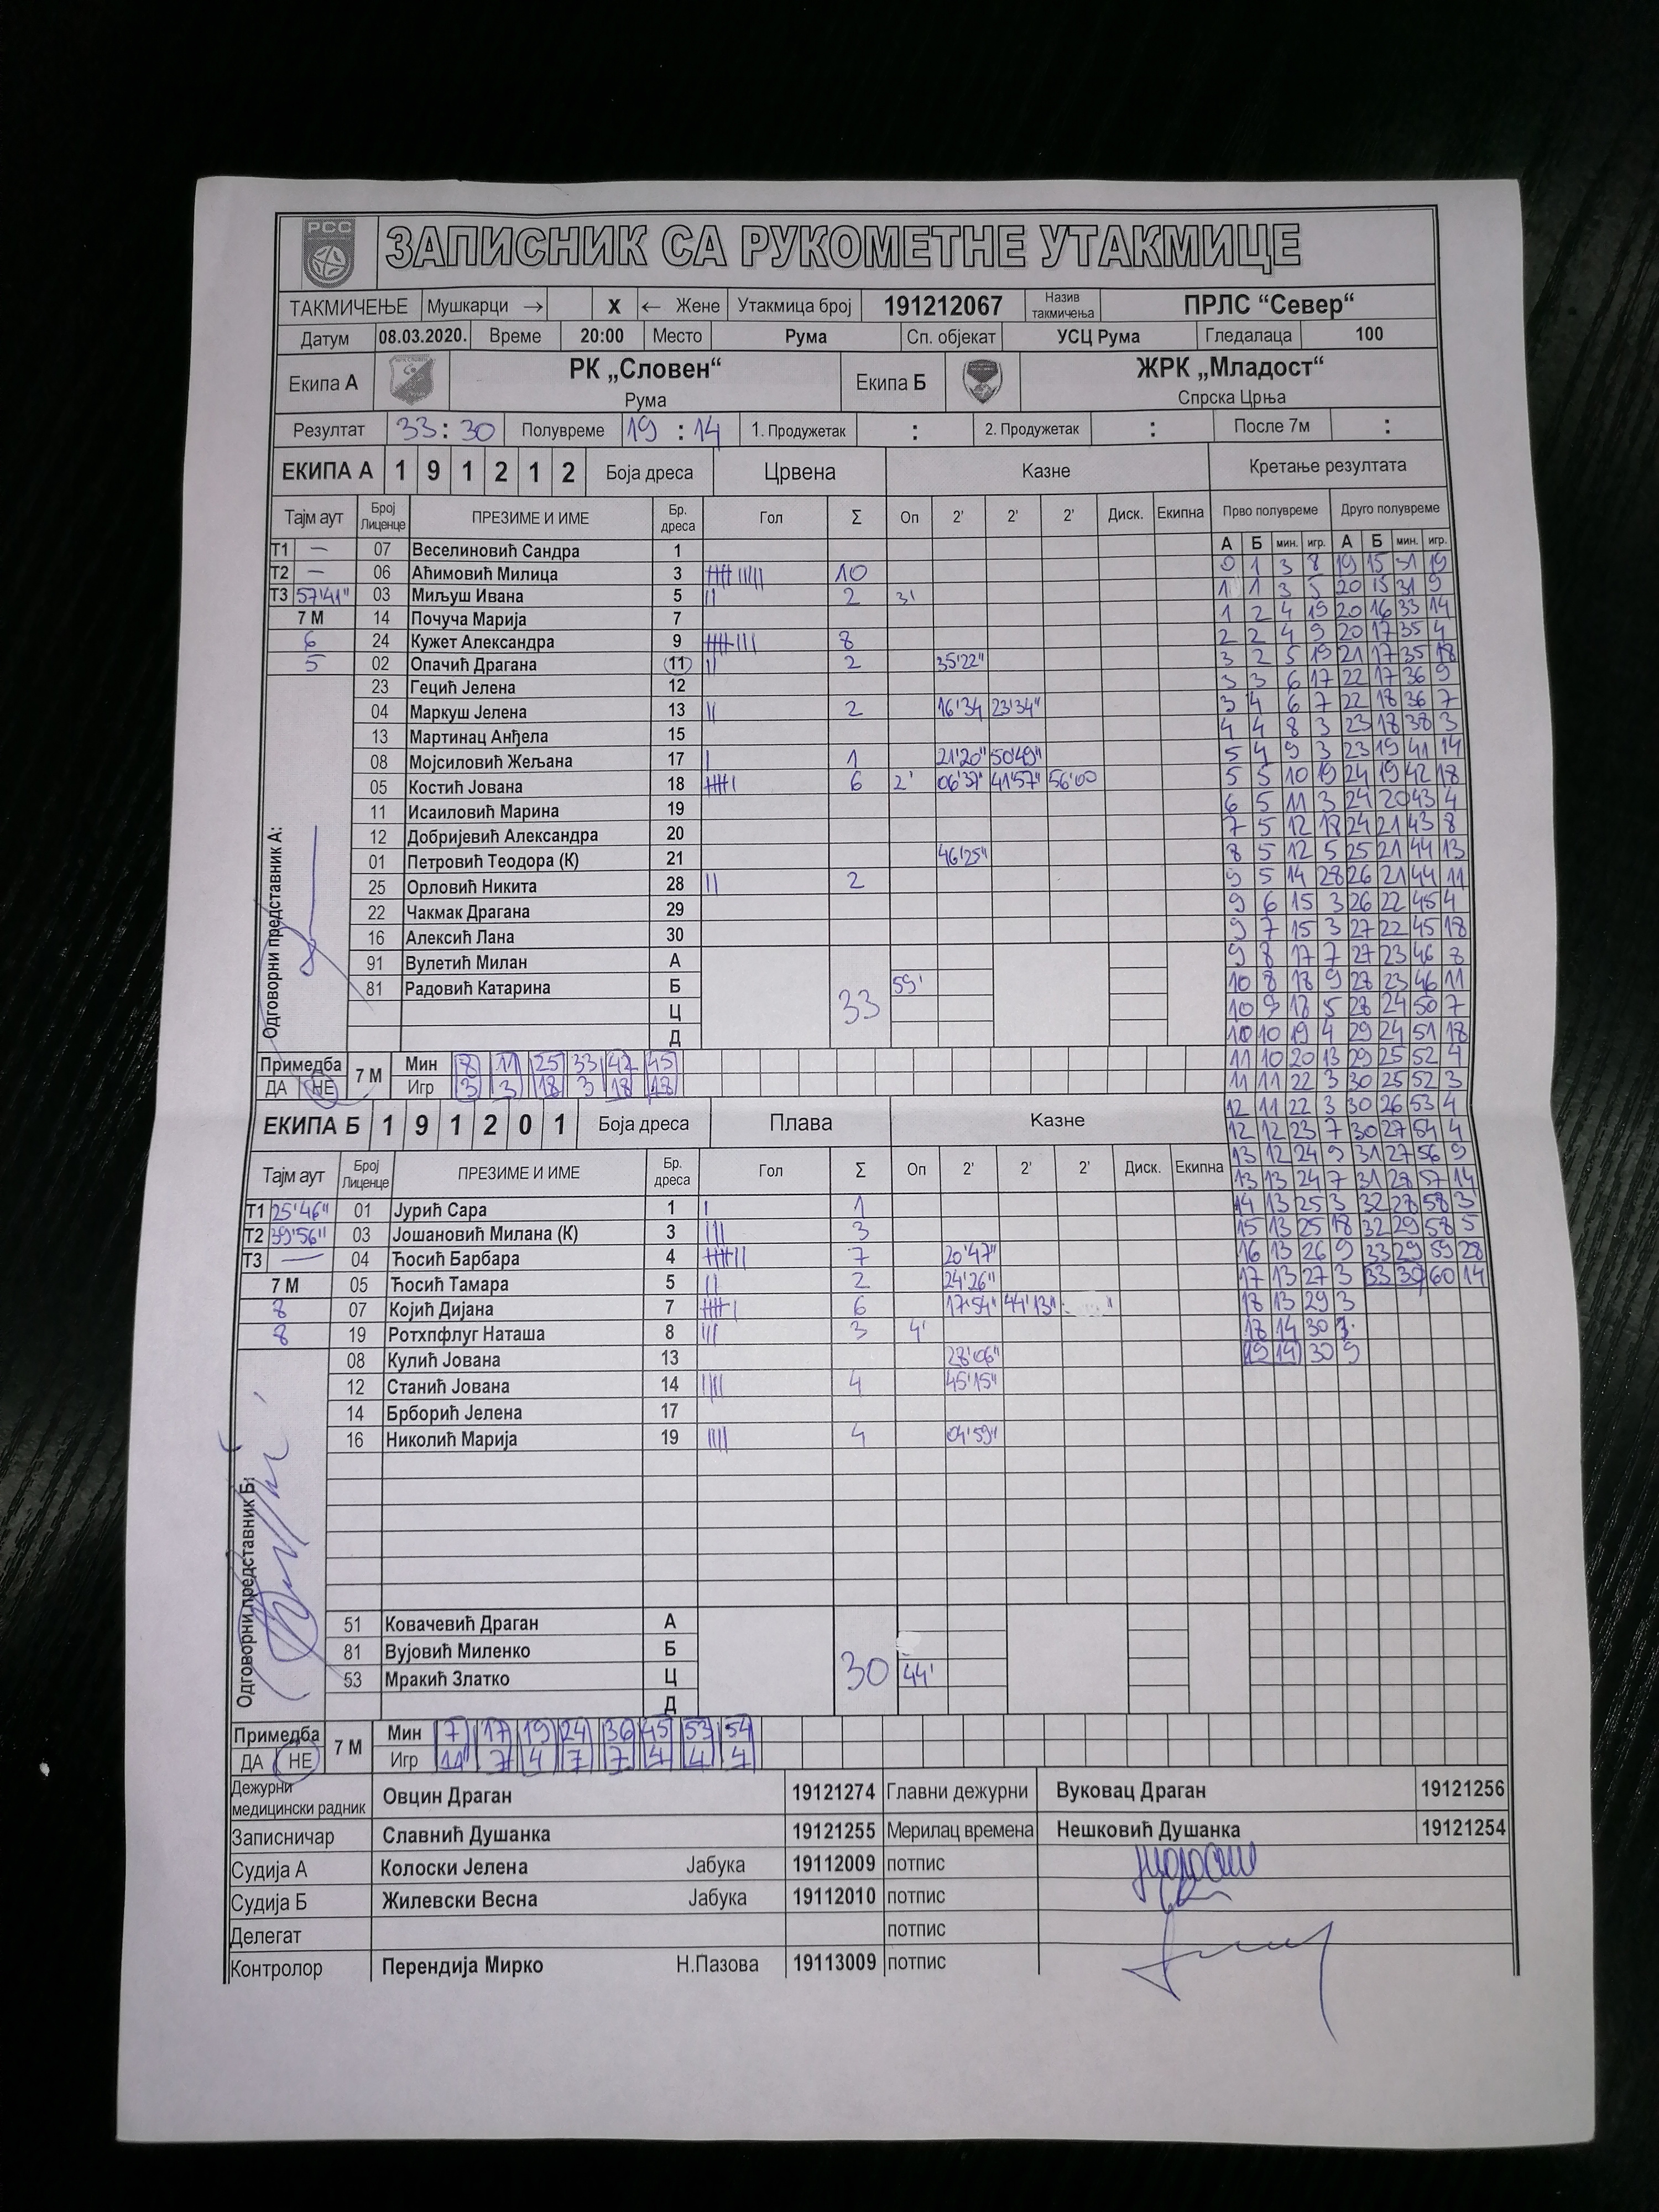 РСС
ЗАПИСНИК СА РУКОМЕТНЕ УТАКМИЦЕ
ТАКМИЧЕЊЕ Мушкарци → X ← Жене Утакмица број 191212067 Назив такмичења ПРЛС “Север“
Датум 08.03.2020. Време 20:00 Место Рума Сп. објекат УСЦ Рума Гледалаца 100
Екипа А РК „Словен“ Рума Екипа Б ЖРК „Младост“ Спрска Црња
Резултат 33 : 30 Полувреме 19 : 14 1. Продужетак : 2. Продужетак : После 7м :
ЕКИПА А 1 9 1 2 1 2 Боја дреса Црвена Казне Кретање резултата
Тајм аут Број Лиценце ПРЕЗИМЕ И ИМЕ Бр. дреса Гол Σ Оп 2' 2' 2' Диск. Екипна Прво полувреме Друго полувреме
А Б мин. игр. А Б мин. игр.
Т1 — 07 Веселиновић Сандра 1 0 1 3 8 19 15 31 19
Т2 — 06 Аћимовић Милица 3 10 1 1 3 5 20 15 31 9
Т3 57'41" 03 Миљуш Ивана 5 2 3' 1 2 4 19 20 16 33 14
7 М 14 Почуча Марија 7 2 2 4 9 20 17 35 4
6 24 Кужет Александра 9 8 3 2 5 19 21 17 35 18
5 02 Опачић Драгана 11 2 35'22" 3 3 6 17 22 17 36 9
23 Гецић Јелена 12 3 4 6 7 22 18 36 7
04 Маркуш Јелена 13 2 16'34 23'34" 4 4 8 3 23 18 38 3
13 Мартинац Анђела 15 5 4 9 3 23 19 41 14
08 Мојсиловић Жељана 17 1 21'20" 50'49" 5 5 10 19 24 19 42 18
05 Костић Јована 18 6 2' 06'37" 41'57" 56'00 6 5 11 3 24 20 43 4
11 Исаиловић Марина 19 7 5 12 18 24 21 43 8
12 Добријевић Александра 20 8 5 12 5 25 21 44 13
01 Петровић Теодора (К) 21 46'25" 9 5 14 28 26 21 44 11
25 Орловић Никита 28 2 9 6 15 3 26 22 45 4
22 Чакмак Драгана 29 9 7 15 3 27 22 45 18
16 Алексић Лана 30 9 8 17 7 27 23 46 8
91 Вулетић Милан А 10 8 18 9 28 23 46 11
81 Радовић Катарина Б 59' 10 9 18 5 28 24 50 7
Ц 33 10 10 19 4 29 24 51 18
Д 11 10 20 13 29 25 52 4
Одговорни представник А:
Примедба 7 М Мин 8 11 25 33 42 45 11 11 22 3 30 25 52 3
ДА НЕ Игр 3 3 18 3 18 18 12 11 22 3 30 26 53 4
ЕКИПА Б 1 9 1 2 0 1 Боја дреса Плава Казне 12 12 23 7 30 27 54 4
Тајм аут Број Лиценце ПРЕЗИМЕ И ИМЕ Бр. дреса Гол Σ Оп 2' 2' 2' Диск. Екипна 13 12 24 9 31 27 56 9
13 13 24 7 31 28 57 14
Т1 25'46" 01 Јурић Сара 1 1 14 13 25 3 32 28 58 3
Т2 39'56" 03 Јошановић Милана (К) 3 3 15 13 25 18 32 29 58 5
Т3 — 04 Ћосић Барбара 4 7 20'47" 16 13 26 9 33 29 59 28
7 М 05 Ћосић Тамара 5 2 24'26" 17 13 27 3 33 30 60 14
8 07 Којић Дијана 7 6 17'54" 44'13" 18 13 29 3
8 19 Ротхпфлуг Наташа 8 3 4' 18 14 30
08 Кулић Јована 13 28'06" 19 14 30 9
12 Станић Јована 14 4 45'15"
14 Брборић Јелена 17
16 Николић Марија 19 4 04'59"
Одговорни представник Б:
51 Ковачевић Драган А
81 Вујовић Миленко Б 30
53 Мракић Златко Ц 44'
Д
Примедба 7 М Мин 7 17 19 24 36 45 53 54
ДА НЕ Игр 14 7 4 7 7 4 4 4
Дежурни медицински радник Овцин Драган 19121274 Главни дежурни Вуковац Драган 19121256
Записничар Славнић Душанка 19121255 Мерилац времена Нешковић Душанка 19121254
Судија А Колоски Јелена Јабука 19112009 потпис
Судија Б Жилевски Весна Јабука 19112010 потпис
Делегат потпис
Контролор Перендија Мирко Н.Пазова 19113009 потпис